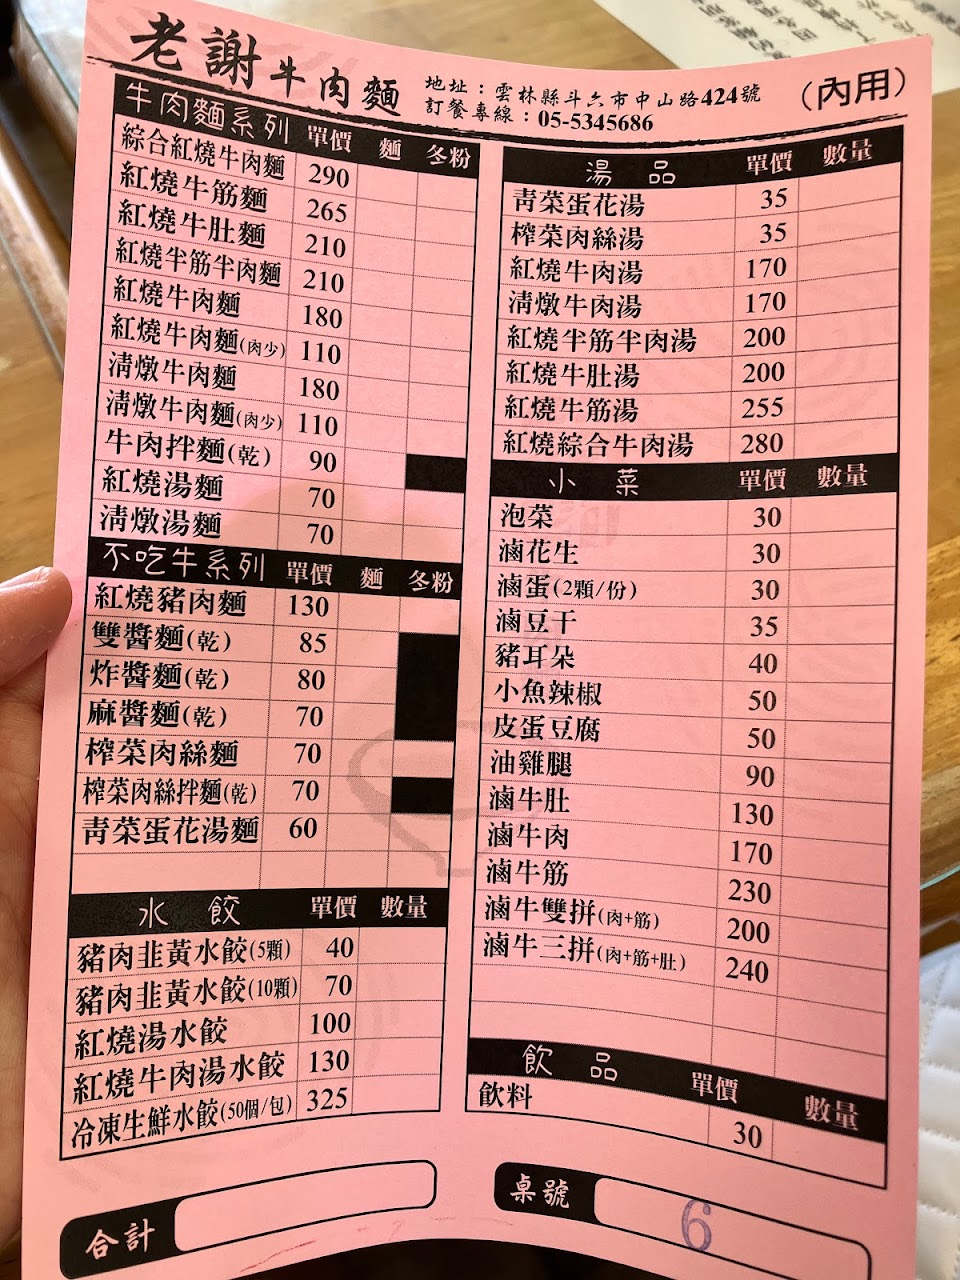 老謝牛肉麵
地址：雲林縣斗六市中山路424號
訂餐專線：05-5345686
（內用）
牛肉麵系列 單價 麵 冬粉
綜合紅燒牛肉麵 290
紅燒牛筋麵 265
紅燒牛肚麵 210
紅燒半筋半肉麵 210
紅燒牛肉麵 180
紅燒牛肉麵(肉少) 110
清燉牛肉麵 180
清燉牛肉麵(肉少) 110
牛肉拌麵(乾) 90
紅燒湯麵 70
清燉湯麵 70
不吃牛系列 單價 麵 冬粉
紅燒豬肉麵 130
雙醬麵(乾) 85
炸醬麵(乾) 80
麻醬麵(乾) 70
榨菜肉絲麵 70
榨菜肉絲拌麵(乾) 70
青菜蛋花湯麵 60
水餃 單價 數量
豬肉韭黃水餃(5顆) 40
豬肉韭黃水餃(10顆) 70
紅燒湯水餃 100
紅燒牛肉湯水餃 130
冷凍生鮮水餃(50個/包) 325
合計
湯品 單價 數量
青菜蛋花湯 35
榨菜肉絲湯 35
紅燒牛肉湯 170
清燉牛肉湯 170
紅燒半筋半肉湯 200
紅燒牛肚湯 200
紅燒牛筋湯 255
紅燒綜合牛肉湯 280
小菜 單價 數量
泡菜 30
滷花生 30
滷蛋(2顆/份) 30
滷豆干 35
豬耳朵 40
小魚辣椒 50
皮蛋豆腐 50
油雞腿 90
滷牛肚 130
滷牛肉 170
滷牛筋 230
滷牛雙拼(肉+筋) 200
滷牛三拼(肉+筋+肚) 240
飲品 單價 數量
飲料 30
桌號 6